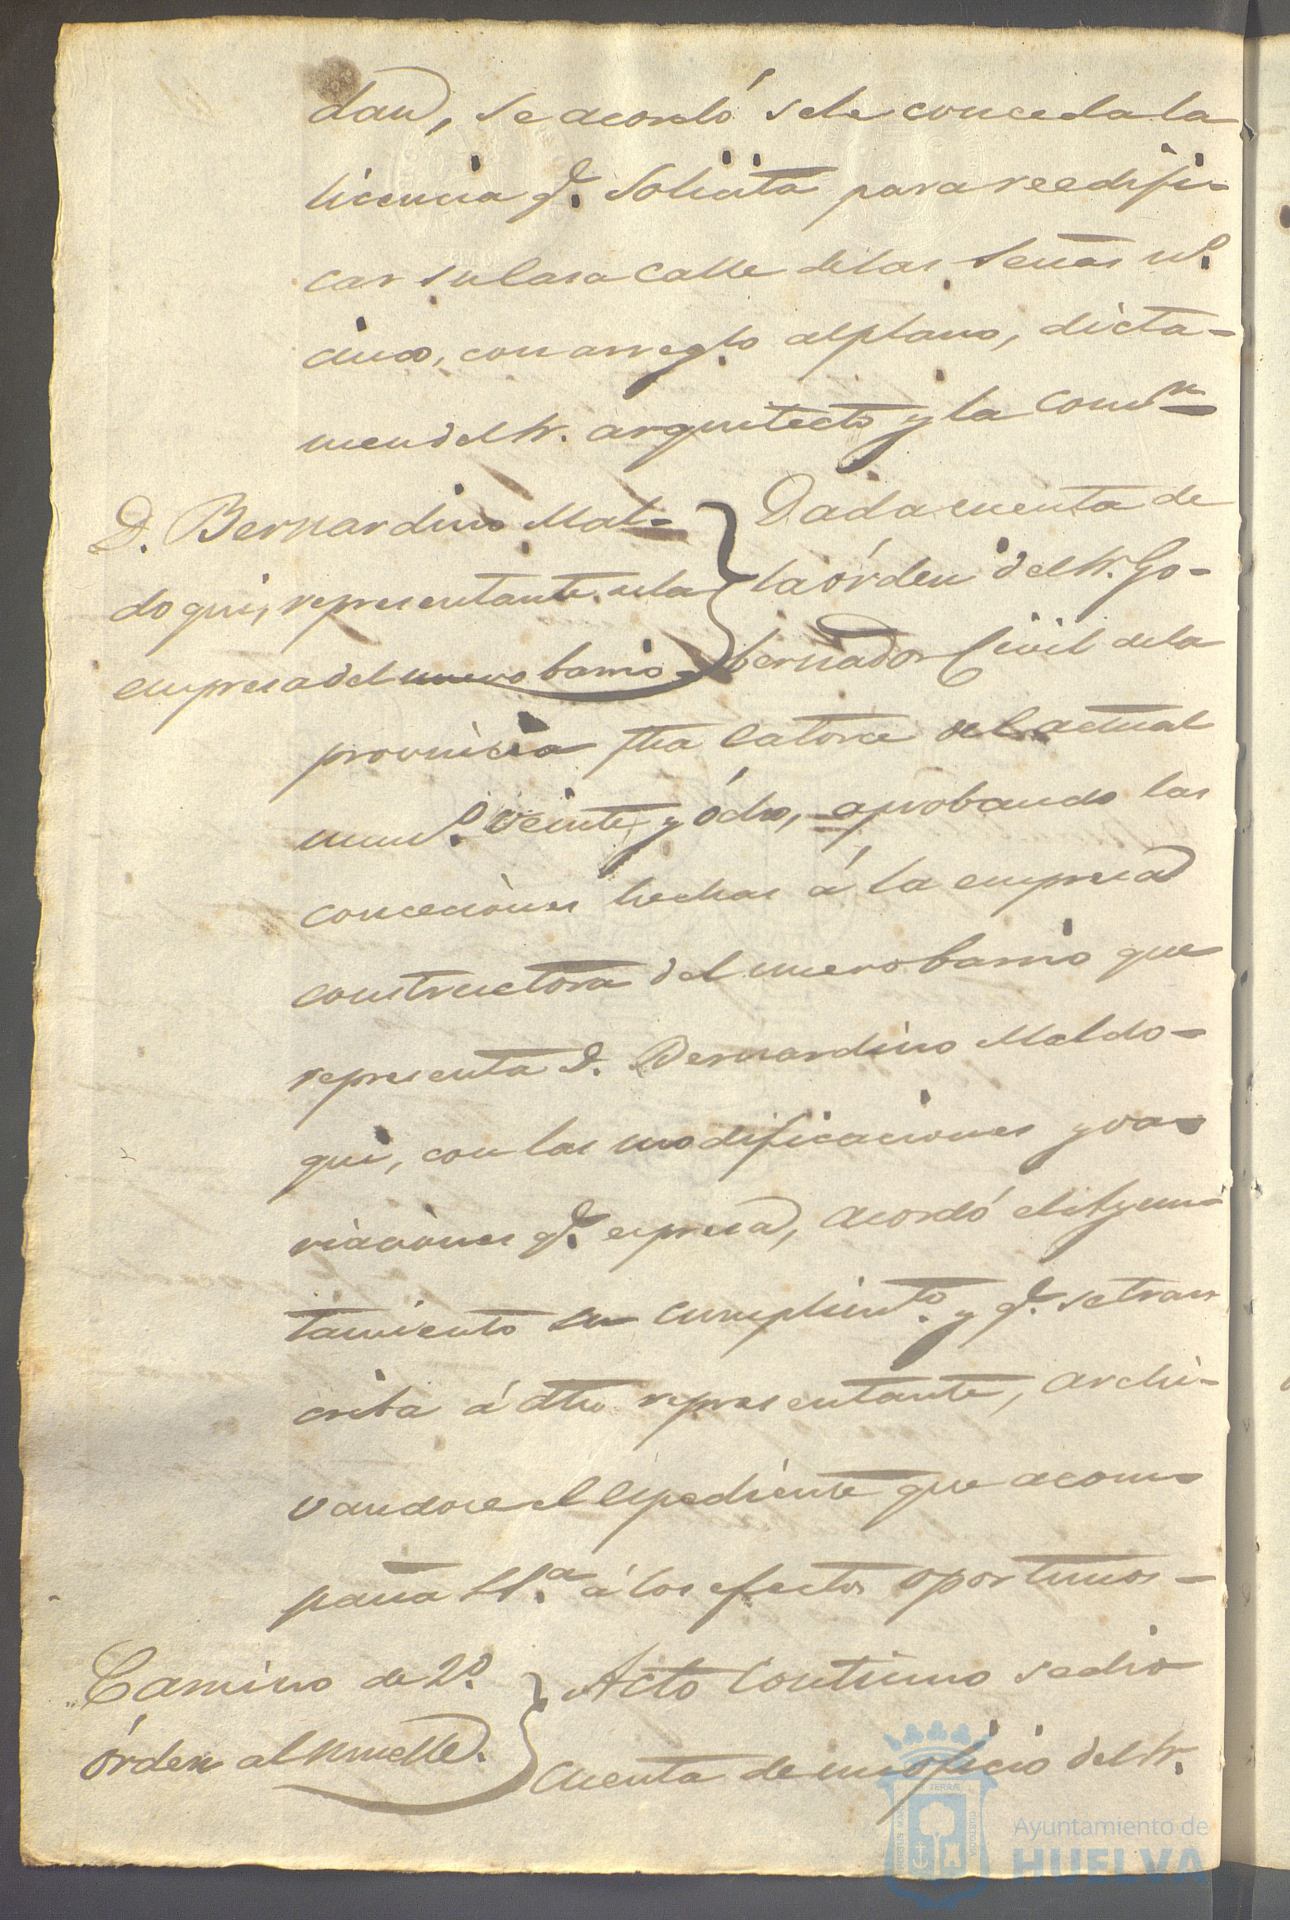 dan, se acordó sele conceda la
licencia q.e Solicita para reedifi-
car su Casa Calle delas Señas n.o
cinco, con arreglo alplano, dicta-
men del Sr. arquitecto y la Com.on
D. Bernardino Mal-
doqui, representante dela
empresa del nuevo barrio
Dada cuenta de
la órden del Sr. Go-
bernador Civil dela
provincia fha Catorce del actual
num.o veinte y ócho, aprobando las
conceciones hechas á la empresa
constructora del nuevo barrio que
representa D. Bernardino Maldo-
qui, con las modificaciones y va-
riaciones q.e espresa, acordó el Ayun-
tamiento su cumplim.to y q.e se trans
criba á dho representante, archi-
vandose el espediente que acom-
paña S.S.a á los efectos oportunos-
Camino de 2.o
órden al muelle.
Acto Continuo se dio
Cuenta de un oficio del Sr.
Ayuntamiento de
HUELVA